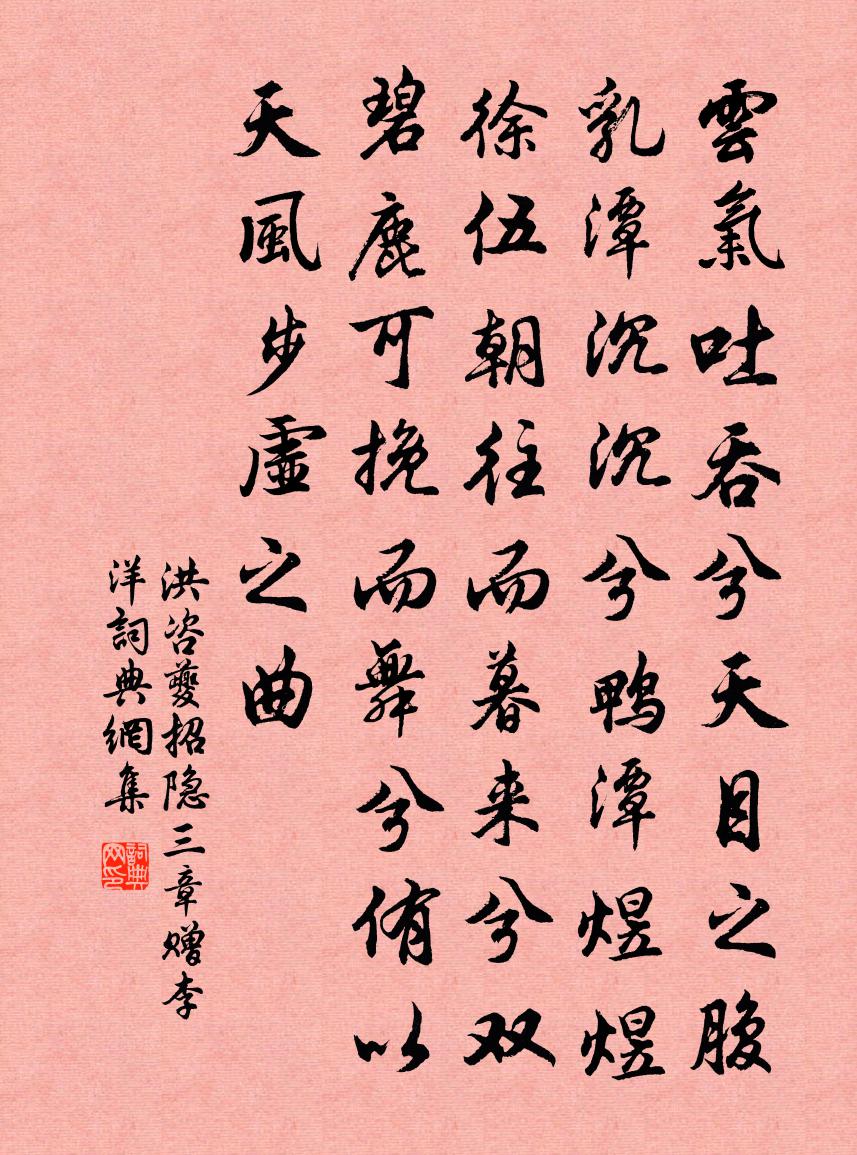 雲氣吐吞兮天目之腹
乳潭沉沉兮鸭潭煜煜
徐伍朝往而暮来兮双
碧鹿可挽而舞兮侑以
天風步虛之曲
洪咨夔招隐三章赠李
洋詞典網集
詞典网印